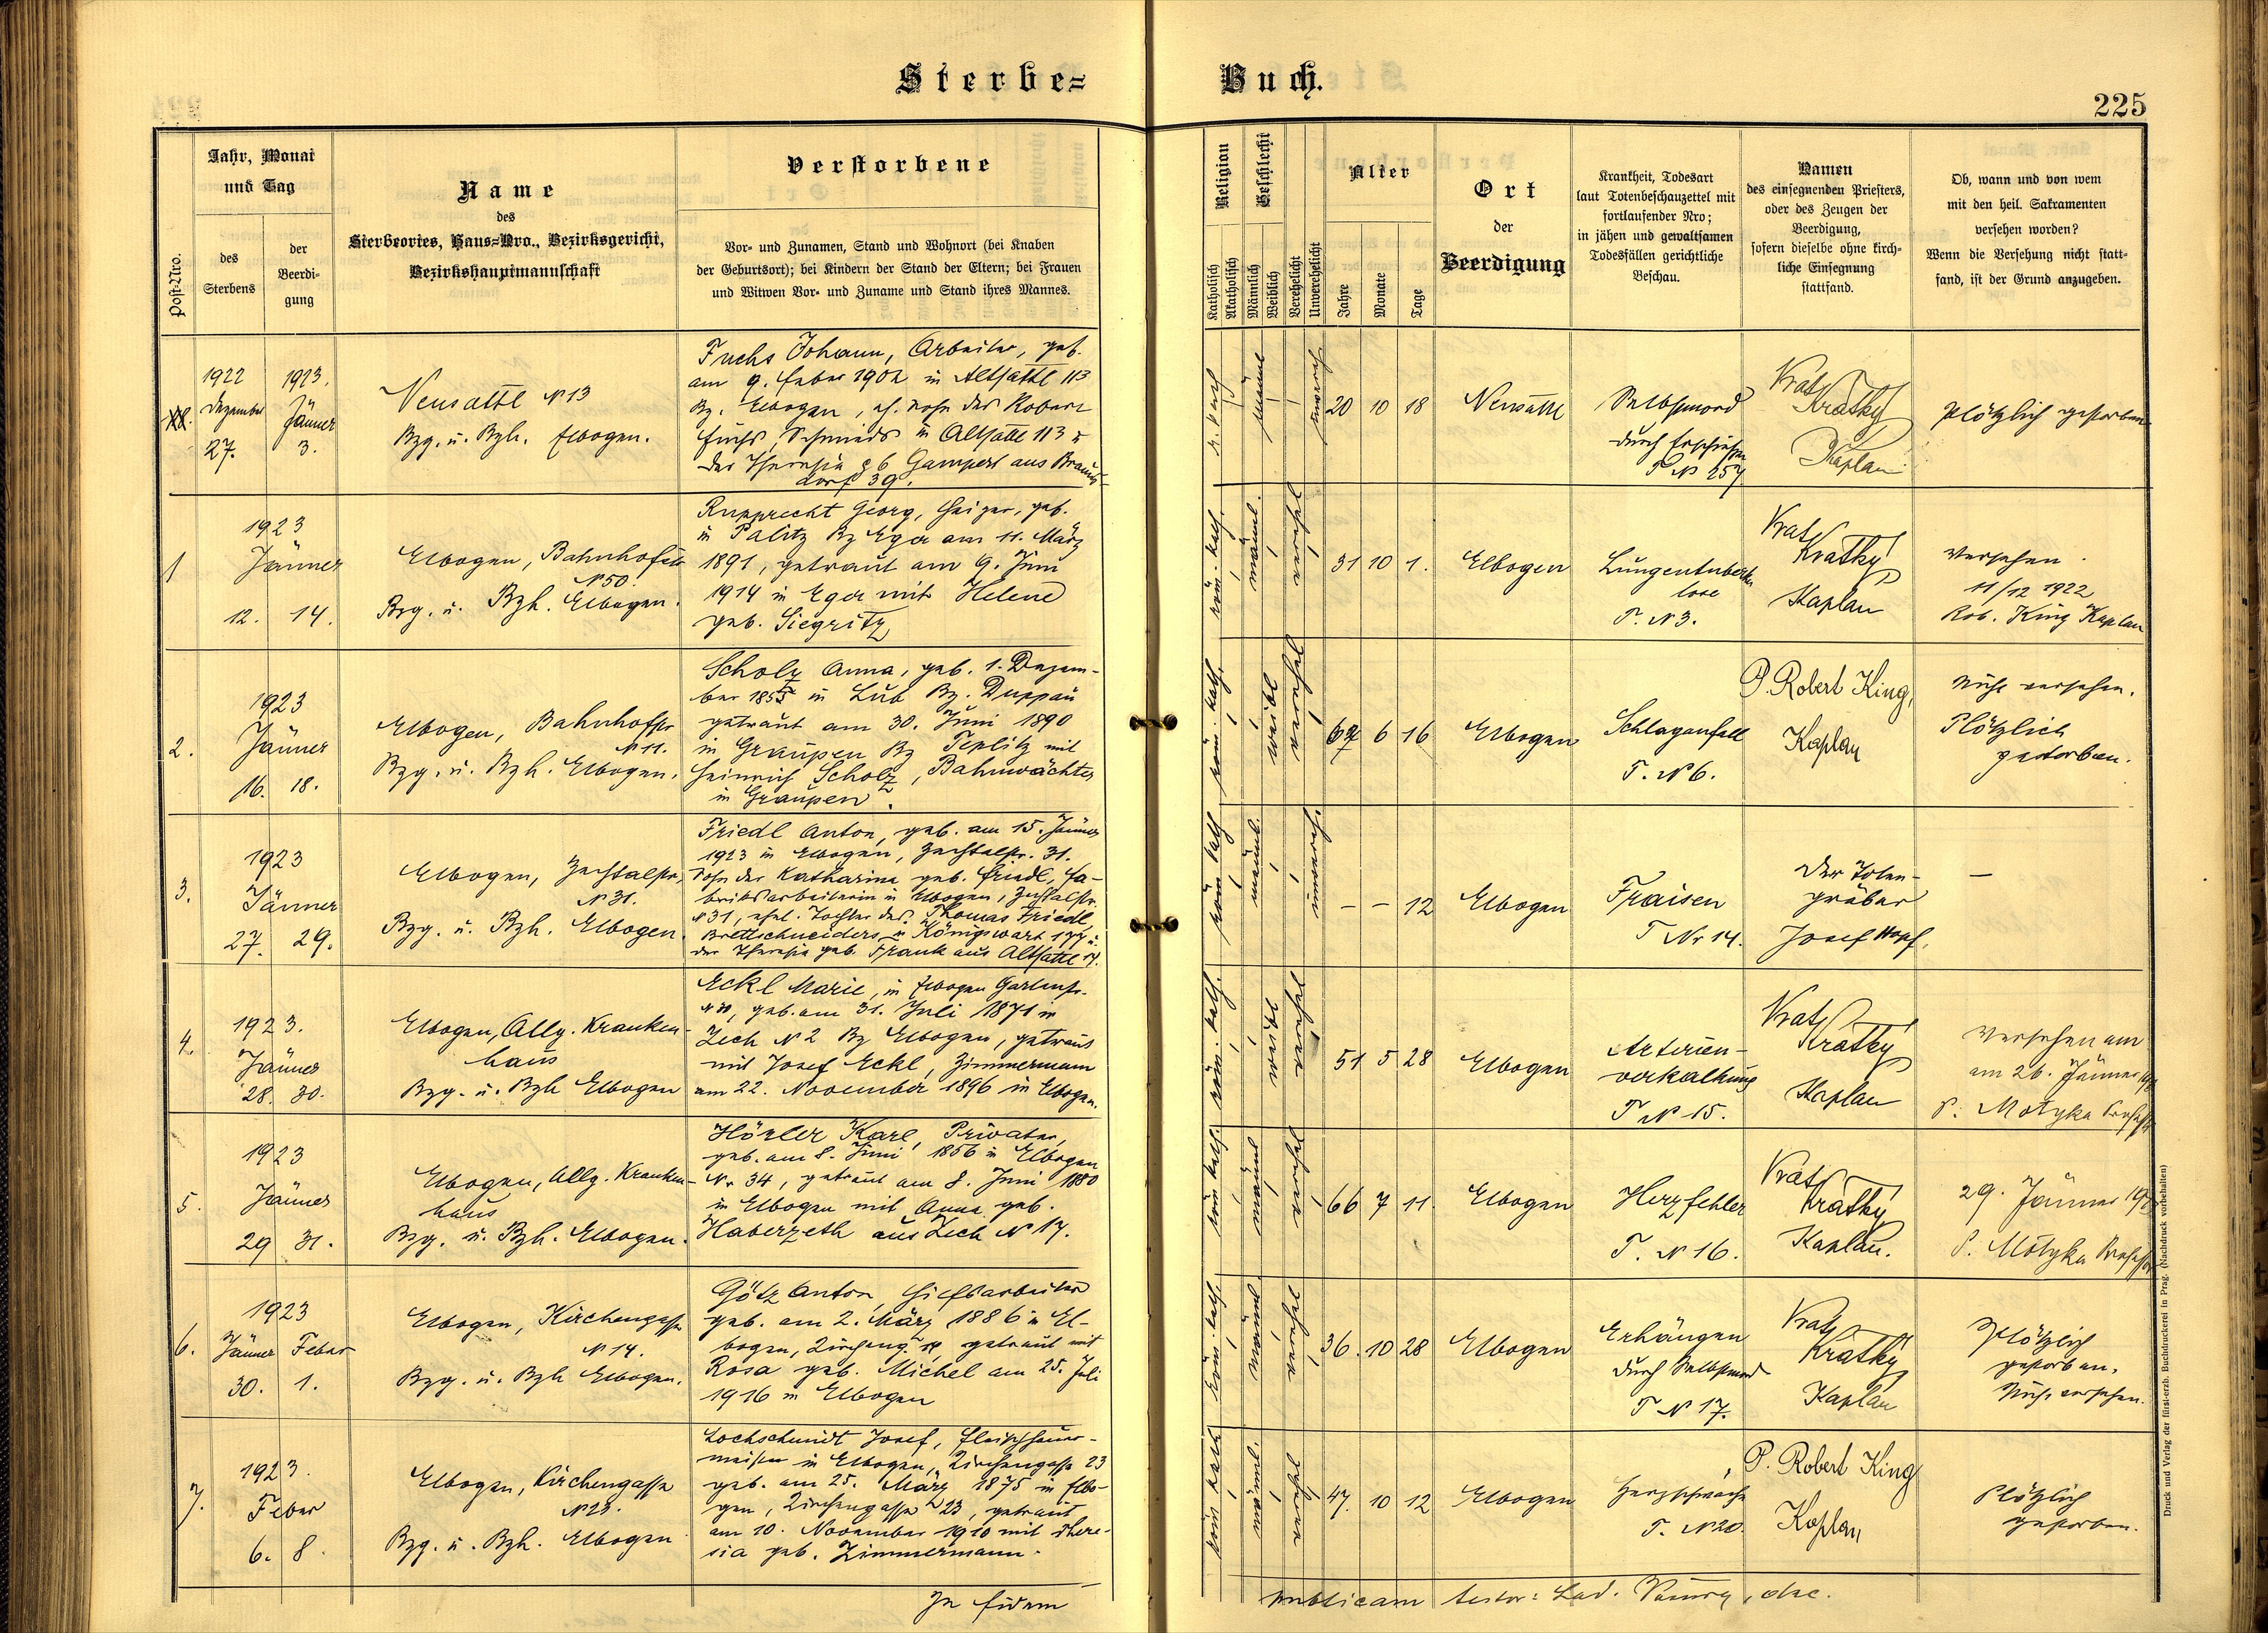 Sterbe= Buch.
225
Post-Nro.
Jahr, Monat
und Tag
des
Sterbens
der
Beerdi-
gung
Name
des
Sterbeortes, Haus-Nro., Bezirksgericht,
Bezirkshauptmannschaft
Verstorbene
Vor- und Zunamen, Stand und Wohnort (bei Knaben
der Geburtsort); bei Kindern der Stand der Eltern; bei Frauen
und Witwen Vor- und Zuname und Stand ihres Mannes.
Religion
Katholisch
Akatholisch
Geschlecht
Männlich
Weiblich
Verehelicht
Unverehelicht
Alter
Jahre
Monate
Tage
Ort
der
Beerdigung
Krankheit, Todesart
laut Totenbeschauzettel mit
fortlaufender Nro;
in jähen und gewaltsamen
Todesfällen gerichtliche
Beschau.
Namen
des einsegnenden Priesters,
oder des Zeugen der
Beerdigung,
sofern dieselbe ohne kirch-
liche Einsegnung
stattfand.
Ob, wann und von wem
mit den heil. Sakramenten
versehen worden?
Wenn die Versehung nicht statt-
fand, ist der Grund anzugeben.
1922 Dezember 27.
1923. Jänner 3.
Neusattl N 13
Bzg. u. Bzh. Elbogen.
Fuchs Johann, Arbeiter, geb.
am 9. Feber 1902 in Altsattl 113
Bz. Elbogen, eh. Sohn des Robert
Fuchs, Schmieds in Altsattl 113 u
der Theresia geb Gampert aus Brauns-
dorf 39.
r. kath
männl
unvereh
20 10 18
Neusattl
Selbstmord
durch Erschießen
T N 257
Vrat. Kratky
Kaplan
Plötzlich gestorben
1
1923
Jänner
12. 14.
Elbogen, Bahnhofstr
N 50.
Bzg. u. Bzh. Elbogen.
Rupprecht Georg, Heizer, geb.
in Palitz Bz Eger am 11. März
1891, getraut am 9. Juni
1914 in Eger mit Helene
geb. Siegritz
röm. kath.
männl.
verehel
31 10 1.
Elbogen
Lungentuberku
lose
T. N 3.
Vrat. Kratky
Kaplan
Versehen.
11/12 1922
Rob. King Kaplan
2.
1923
Jänner
16. 18.
Elbogen, Bahnhofstr
N 11.
Bzg. u. Bzh. Elbogen.
Scholz Anna, geb. 1. Dezem-
ber in Lub Bz. Duppau
getraut am 30. Juni 1890
in Graupen Bz Teplitz mit
Heinrich Scholz, Bahnwächter
in Graupen.
röm. kath.
weibl
verehel
6 16
Elbogen
Schlaganfall
T. N 6.
P. Robert King,
Kaplan
Nicht versehen.
Plötzlich
gestorben.
3.
1923
Jänner
27. 29.
Elbogen, Zechtalstr,
N 31.
Bzg. u. Bzh. Elbogen.
Friedl Anton, geb. am 15. Jänner
1923 in Elbogen, Zechtalstr. 31.
Sohn der Katharina geb. Friedl, Fa-
briksarbeiterin in Elbogen, Zechtalstr.
N 31, ehel. Tochter des Thomas Friedl,
Brettschneiders in Königswart 177 u.
der Theresia geb. Frank aus Altsattl 14.
röm kath
männl.
unvereh.
– – 12
Elbogen
Fraisen
T Nr 14.
Der Toten-
gräber
Josef Hopf.
—
4.
1923.
Jänner
28. 30.
Elbogen, Allg. Kranken-
haus
Bzg. u. Bzh Elbogen
Eckl Marie, in Elbogen Gartenstr.
geb. am 31. Juli 1871 in
Zech N 2 Bz Elbogen, getraut
mit Josef Eckl, Zimmermann
am 22. November 1896 in Elbogen.
röm. kath.
weibl
verehel
51 5 28
Elbogen
Arterien-
verkalkung
T N 15.
Vrat. Kratky
Kaplan
Versehen am
am 26. Jänner
P. Motyka Professor
5.
1923
Jänner
29 31.
Elbogen, Allg. Kranken-
haus
Bzg. u. Bzh. Elbogen.
Hörler Karl, Privater,
geb. am 8. Juni 1856 in Elbogen
Nr 34, getraut am 8. Juni 1880
in Elbogen mit Anna geb.
Haberzeth aus Zech N 17.
röm kath.
männl
verehel
66 7 11.
Elbogen
Herzfehler
T. N 16.
Vrat. Kratky
Kaplan.
29. Jänner
P. Motyka Professor
6.
1923
Jänner Feber
30. 1.
Elbogen, Kirchengasse
N 14.
Bzg. u. Bzh Elbogen.
Götz Anton, Hilfsarbeiter
geb. am 2. März 1886 in El-
bogen, Kircheng. getraut mit
Rosa geb. Michel am 25. Juli
1916 in Elbogen
röm. kath.
männl
verehel
36. 10 28
Elbogen
Erhängen
durch Selbstmord
T N 17.
Vrat. Kratky
Kaplan
Plötzlich
gestorben.
Nicht versehen.
7.
1923.
Feber
6. 8.
Elbogen, Kirchengasse
N 23.
Bzg. u. Bzh. Elbogen
Lochschmidt Josef, Fleischhauer-
meister in Elbogen, Kirchengasse 23
geb. am 25. März 1875 in Elbo-
gen, Kirchengasse 23, getraut
am 10. November 1910 mit There-
sia geb. Zimmermann.
röm kath
männl.
verehel
47. 10 12
Elbogen
Herzschwäche
T. N 20.
P. Robert King
Kaplan
Plötzlich
gestorben.
In fidem publicam testor: Lad. dec.
Druck und Verlag der fürst-erzb. Buchdruckerei in Prag. (Nachdruck vorbehalten)